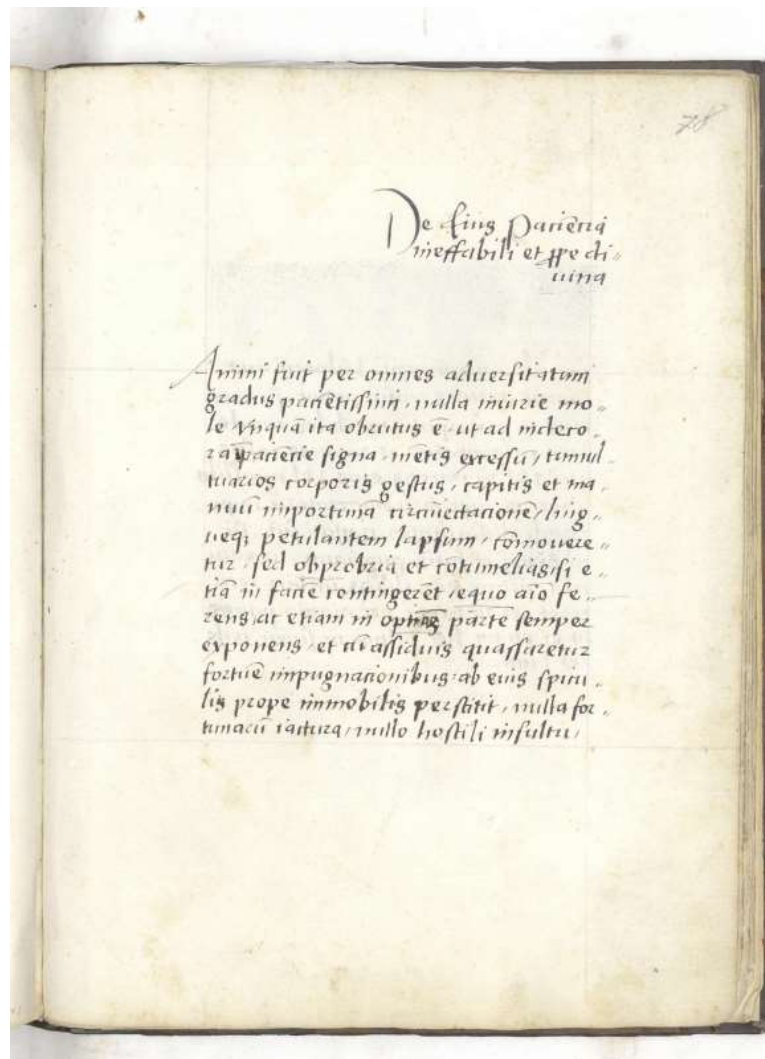 78
De Eius Paciẽcia
ineffabili et ꝓpe di„
uina
Animi fuit per omnes aduersitatum
gradus paciẽtissimi, nulla iniurie mo„
le vnquã ita obrutus ẽ, ut ad indeco„
ra ĩpaciẽcie signa, mẽtis excessũ, tumul„
tuarios corporis gestus, capitis et ma„
nuũ importunã circũiectacionẽ, ling„
ueq; petulantem lapsum, cõmouere„
tur, sed obprobria et cõtumelias, si e„
tiã in faciẽ contingerẽt, equo aĩo fe„
rens, ac etiam in optimã partẽ semper
exponens, et cũ assiduis quassaretur
fortũe impugnacionibus, ab eius spicu„
lis prope immobilis perstitit, nulla for„
tunarũ iactura, nullo hostili insultu,